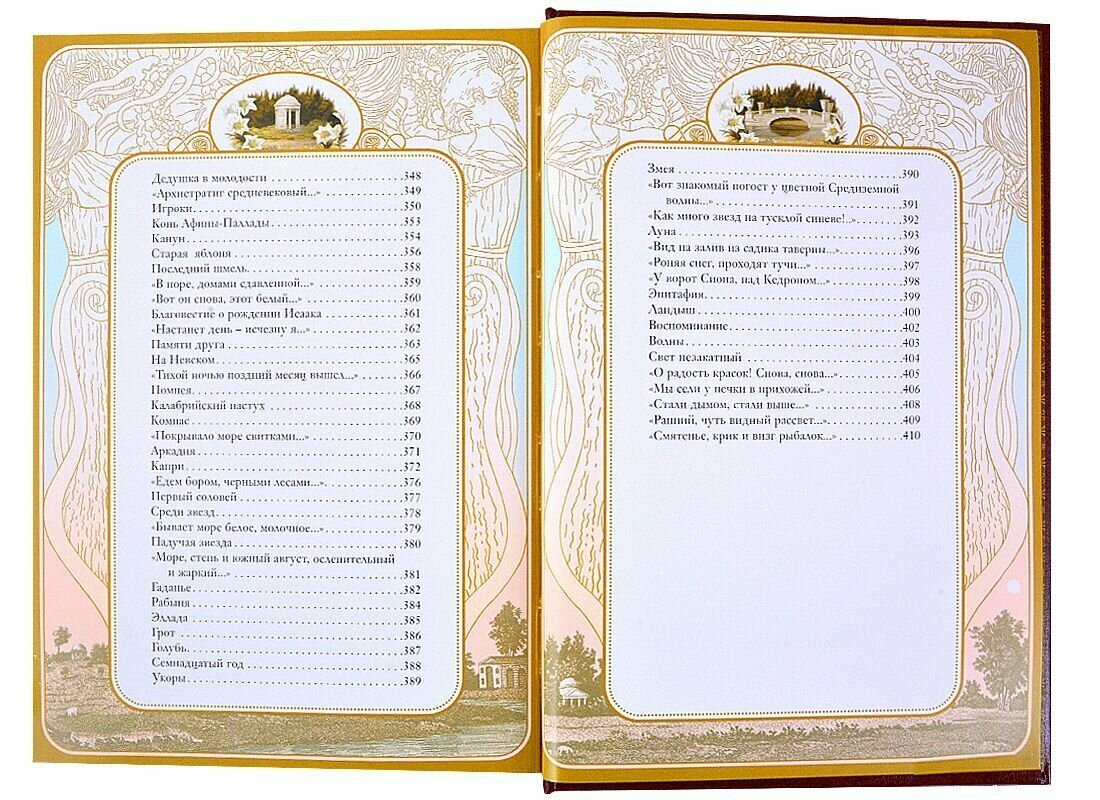 Дедушка в молодости . . . . . . . . . . . . . . . . . . 348
«Архистратиг средневековый...» . . . . . . . . . . 349
Игроки. . . . . . . . . . . . . . . . . . . . . . . . . . . . 350
Конь Афины-Паллады. . . . . . . . . . . . . . . . . 353
Канун. . . . . . . . . . . . . . . . . . . . . . . . . . . . . 354
Старая яблоня . . . . . . . . . . . . . . . . . . . . . . 356
Последний шмель. . . . . . . . . . . . . . . . . . . . 358
«В норе, домами сдавленной...» . . . . . . . . . . 359
«Вот он снова, этот белый...» . . . . . . . . . . . . 360
Благовестие о рождении Исаака . . . . . . . . . . 361
«Настанет день – исчезну я...» . . . . . . . . . . . 362
Памяти друга . . . . . . . . . . . . . . . . . . . . . . . 363
На Невском. . . . . . . . . . . . . . . . . . . . . . . . 365
«Тихой ночью поздний месяц вышел...» . . . . . . 366
Помпея. . . . . . . . . . . . . . . . . . . . . . . . . . . 367
Калабрийский пастух . . . . . . . . . . . . . . . . . 368
Компас . . . . . . . . . . . . . . . . . . . . . . . . . . . 369
«Покрывало море свитками...» . . . . . . . . . . . 370
Аркадия . . . . . . . . . . . . . . . . . . . . . . . . . . 371
Капри . . . . . . . . . . . . . . . . . . . . . . . . . . . . 372
«Едем бором, черными лесами...». . . . . . . . . . 376
Первый соловей . . . . . . . . . . . . . . . . . . . . . 377
Среди звезд. . . . . . . . . . . . . . . . . . . . . . . . 378
«Бывает море белое, молочное...». . . . . . . . . . 379
Падучая звезда . . . . . . . . . . . . . . . . . . . . . 380
«Море, степь и южный август, ослепительный
и жаркий...» . . . . . . . . . . . . . . . . . . . . . . . 381
Гаданье . . . . . . . . . . . . . . . . . . . . . . . . . . 382
Рабыня . . . . . . . . . . . . . . . . . . . . . . . . . . . 384
Эллада . . . . . . . . . . . . . . . . . . . . . . . . . . . 385
Грот . . . . . . . . . . . . . . . . . . . . . . . . . . . . . 386
Голубь. . . . . . . . . . . . . . . . . . . . . . . . . . . . 387
Семнадцатый год . . . . . . . . . . . . . . . . . . . . 388
Укоры . . . . . . . . . . . . . . . . . . . . . . . . . . . . 389
Змея . . . . . . . . . . . . . . . . . . . . . . . . . . . . . 390
«Вот знакомый погост у цветной Средиземной
волны...» . . . . . . . . . . . . . . . . . . . . . . . . . 391
«Как много звезд на тусклой синеве!..» . . . . . . 392
Луна . . . . . . . . . . . . . . . . . . . . . . . . . . . . . 393
«Вид на залив из садика таверны...» . . . . . . . . 396
«Роняя снег, проходят тучи...» . . . . . . . . . . . . 397
«У ворот Сиона, над Кедроном...» . . . . . . . . . . 398
Эпитафия. . . . . . . . . . . . . . . . . . . . . . . . . . 399
Ландыш . . . . . . . . . . . . . . . . . . . . . . . . . . 400
Воспоминание . . . . . . . . . . . . . . . . . . . . . . 402
Волны . . . . . . . . . . . . . . . . . . . . . . . . . . . . 403
Свет незакатный . . . . . . . . . . . . . . . . . . . . 404
«О радость красок! Снова, снова...». . . . . . . . . 405
«Мы сели у печки в прихожей...» . . . . . . . . . . 406
«Стали дымом, стали выше...» . . . . . . . . . . . . 408
«Ранний, чуть видный рассвет...». . . . . . . . . . 409
«Смятенье, крик и визг рыбалок...» . . . . . . . . . 410